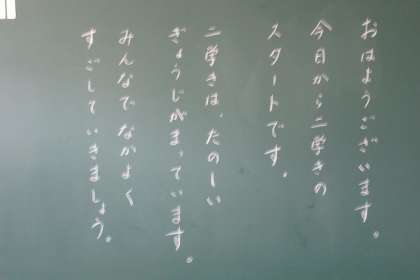 おはようございます。
今日から二学きの
スタートです。
二学きは、たのしい
ぎょうじがまっています。
みんなでなかよく
すごしていきましょう。